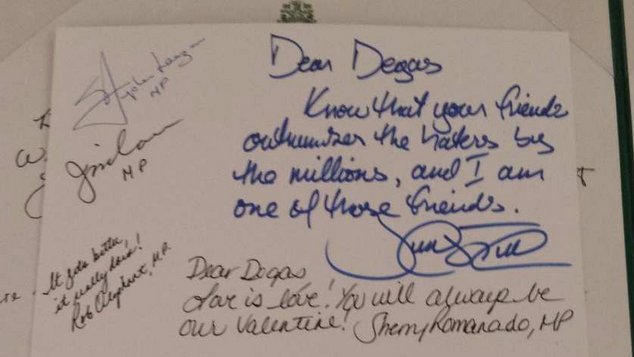 MP
MP
Dear Degas
Know that your friends
outnumber the haters by
the millions, and I am
one of those friends.
It gets better,
it really does!
Rob Oliphant, M.P.
Dear Degas
Love is love! You will always be
our Valentine! Sherry Romanado, MP